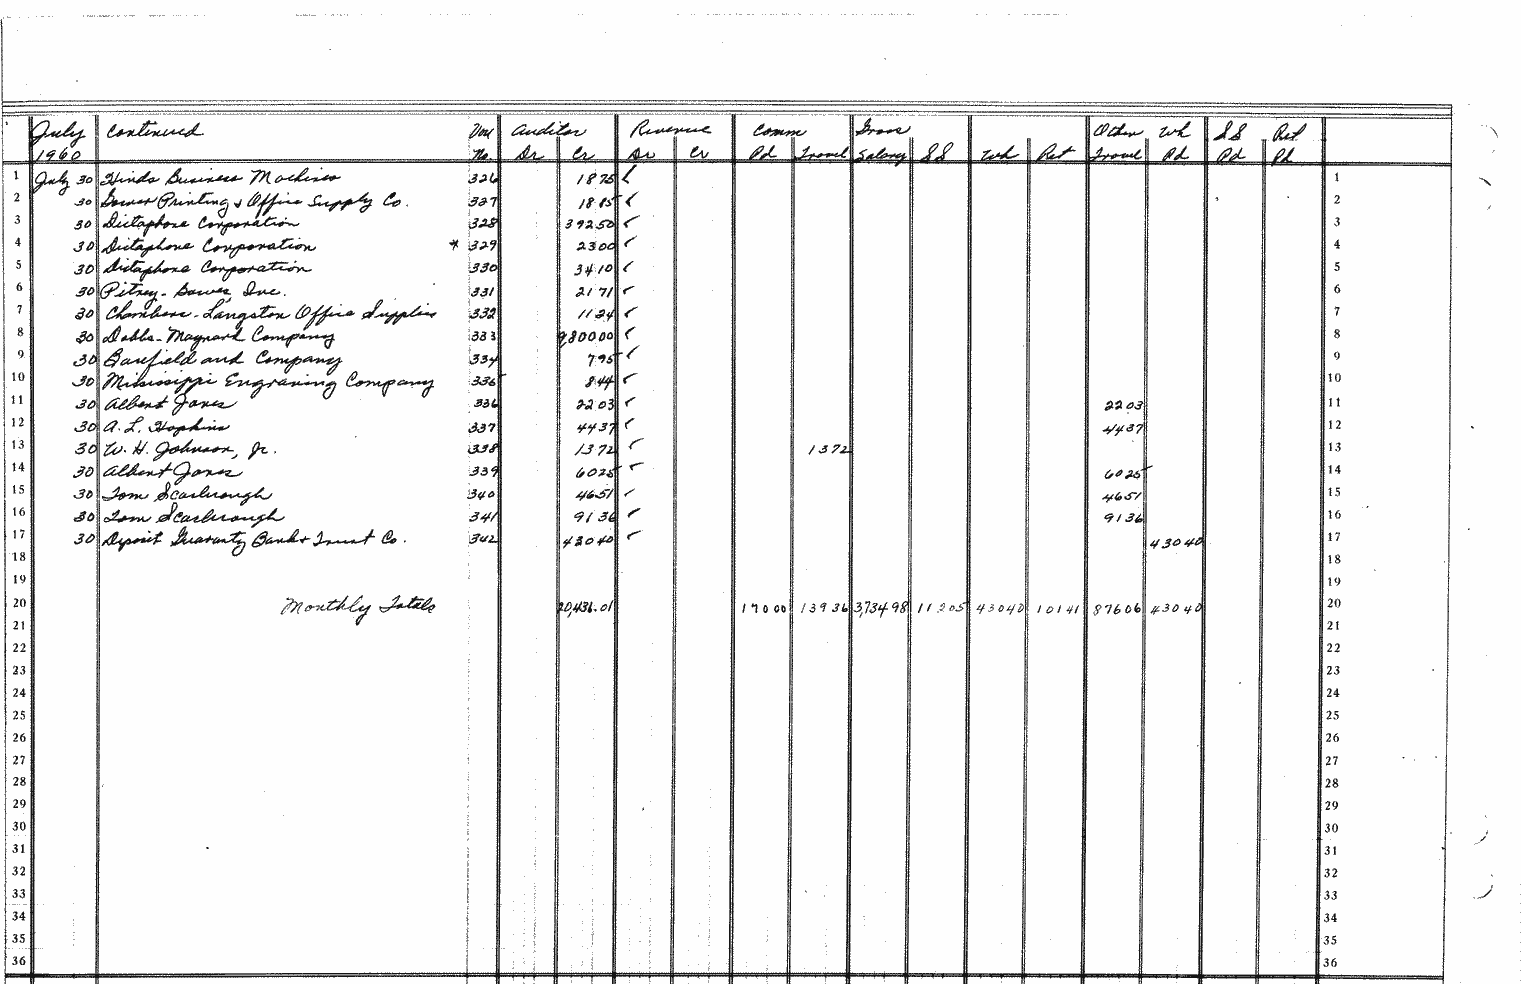 July continued Vou Auditor Revenue Comm Gross Other Wh SS Ret
1960 No. Dr Cr Dr Cr Pd Travel Salary SS Wh Ret Travel Pd Pd Pd
1 July 30 Hinds Business Machines 326 1875 ✓ 1
2 30 Printing & Office Supply Co. 327 ✓ 2
3 30 Dictaphone Corporation 328 39250 ✓ 3
4 30 Dictaphone Corporation * 329 2300 ✓ 4
5 30 Dictaphone Corporation 330 3410 ✓ 5
6 30 Pitney-Bowes, Inc. 331 2171 ✓ 6
7 30 Chambers-Langston Office Supplies 332 1124 ✓ 7
8 30 Dobbs-Maynard Company 333 9,80000 ✓ 8
9 30 Barefield and Company 334 795 ✓ 9
10 30 Mississippi Engraving Company 335 844 ✓ 10
11 30 Albert Jones 336 2203 ✓ 2203 11
12 30 A. L. Hopkins 337 4437 ✓ 4437 12
13 30 W. H. Johnson, Jr. 338 1372 ✓ 1372 13
14 30 Albert Jones 339 6025 ✓ 6025 14
15 30 Tom Scarbrough 340 4651 ✓ 4651 15
16 30 Tom Scarbrough 341 9136 ✓ 9136 16
17 30 Deposit Guaranty Bank & Trust Co. 342 43040 ✓ 43040 17
18 18
19 19
20 Monthly Totals 20,436.01 17000 13936 3,73498 11205 43040 10141 87606 43040 20
21 21
22 22
23 23
24 24
25 25
26 26
27 27
28 28
29 29
30 30
31 31
32 32
33 33
34 34
35 35
36 36